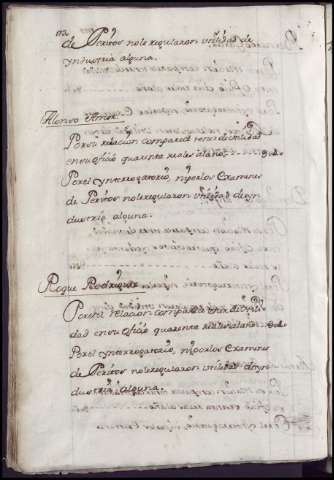 de Peritos nole regularon utilidad de
yndustria alguna.
Alonso
Por su relacion comparece tener de utilidad
en su oficio quarenta reales al año
Por el ynterrogatorio, ni por los Examenes
de Peritos nole regularon utilidad de yn
dustria alguna.
Roque Rodriguez
Por su relacion comparece tener de utili
dad en su oficio quarenta reales al año
Por el ynterrogatorio, ni por los Examenes
de Peritos nole regularon utilidad de yn
dustria alguna.